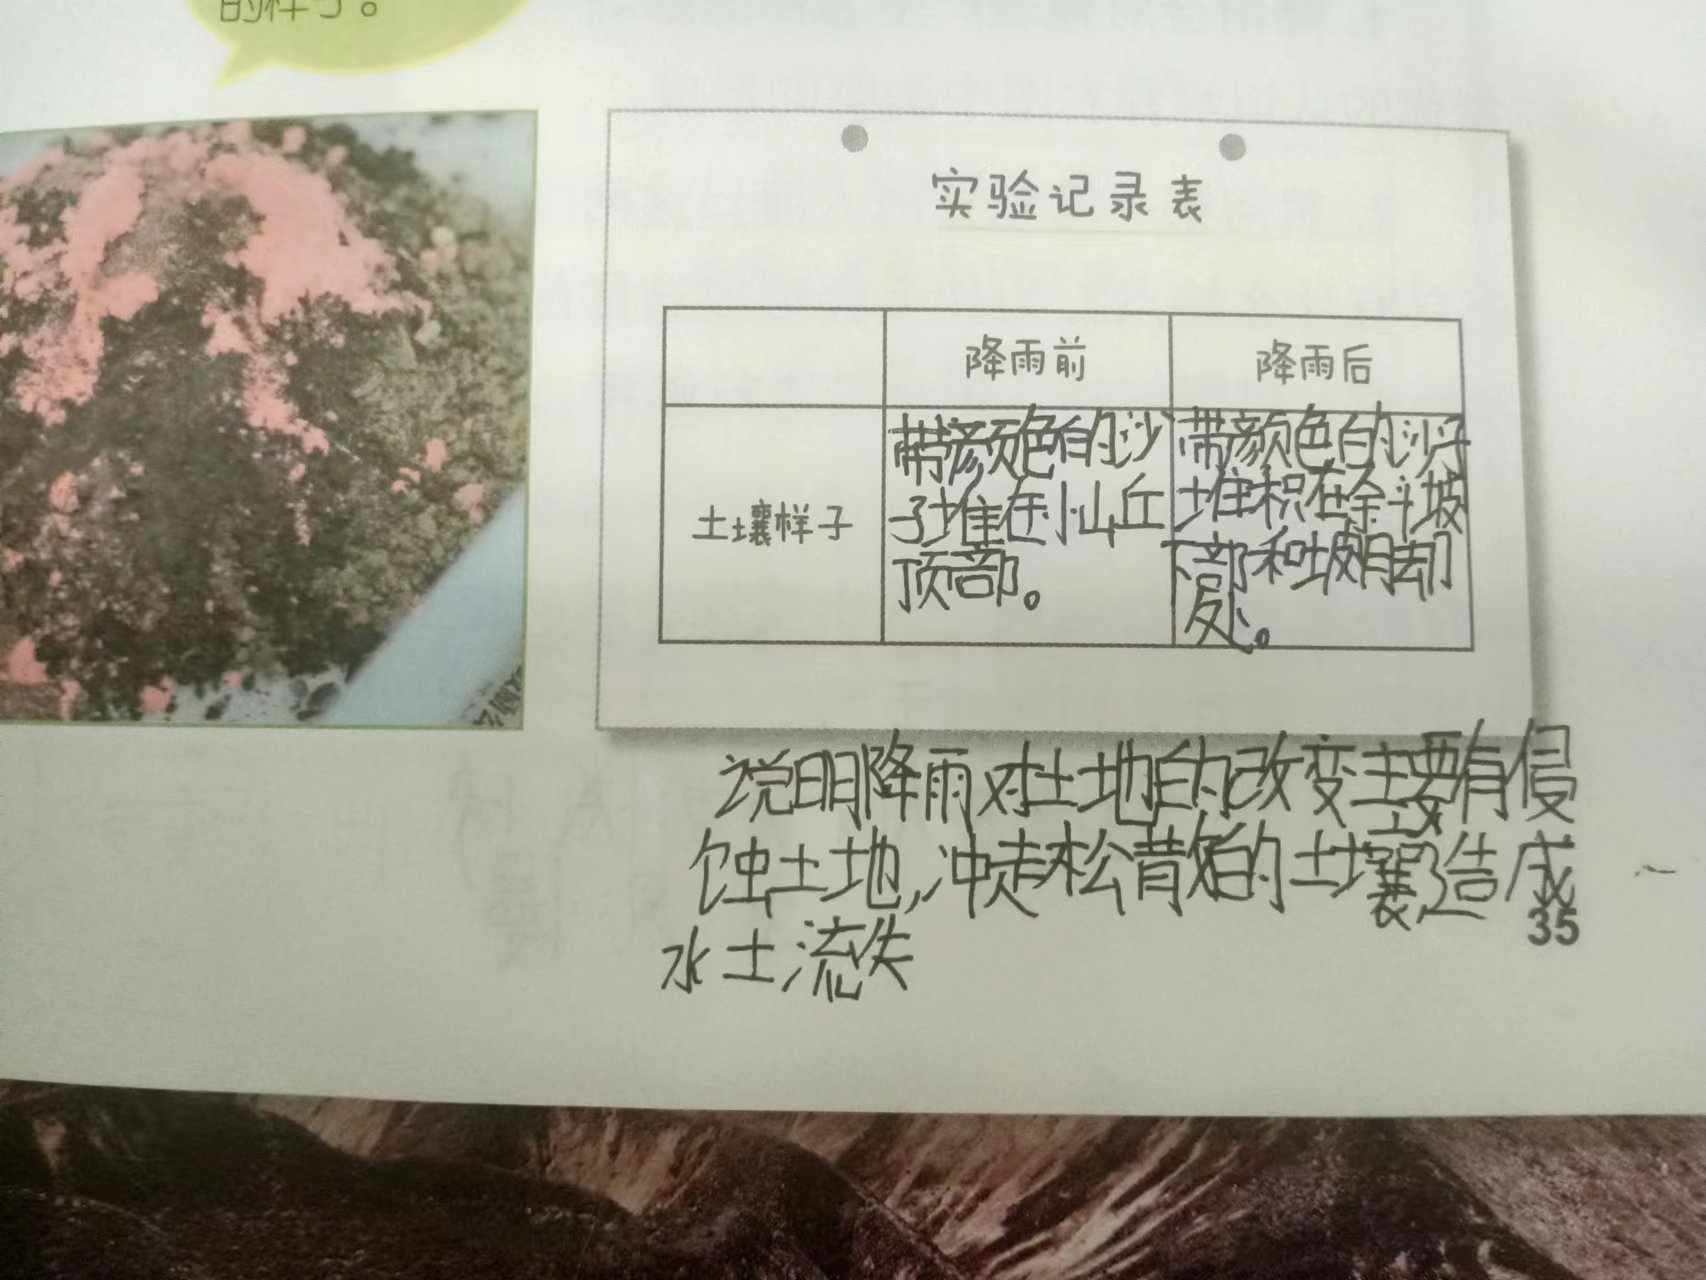 的样子。
实验记录表
降雨前
降雨后
土壤样子
带颜色的沙
子堆在小山丘
顶部。
带颜色的沙子
堆积在斜坡
下部和坡脚
处。
说明降雨对土地的改变主要有侵
蚀土地,冲走松散的土壤造成
水土流失
35